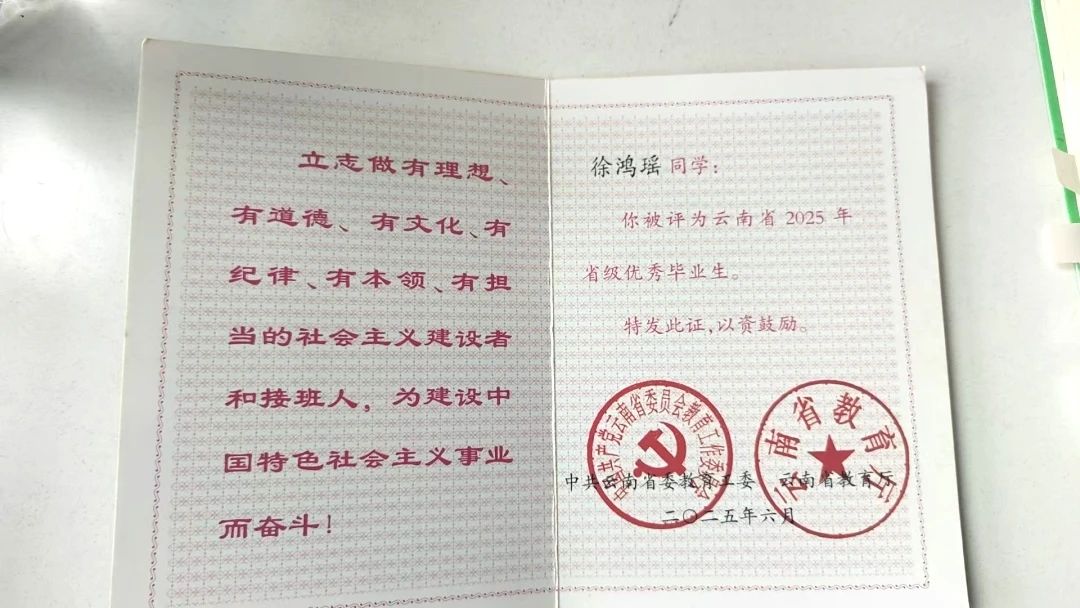 立志做有理想、
有道德、有文化、有
纪律、有本领、有担
当的社会主义建设者
和接班人，为建设中
国特色社会主义事业
而奋斗！
徐鸿瑶 同学：
你被评为云南省 2025 年
省级优秀毕业生。
特发此证，以资鼓励。
中国共产党云南省委员会教育工作委员会
云南省教育厅
中共云南省委教育工委 云南省教育厅
二〇二五年六月